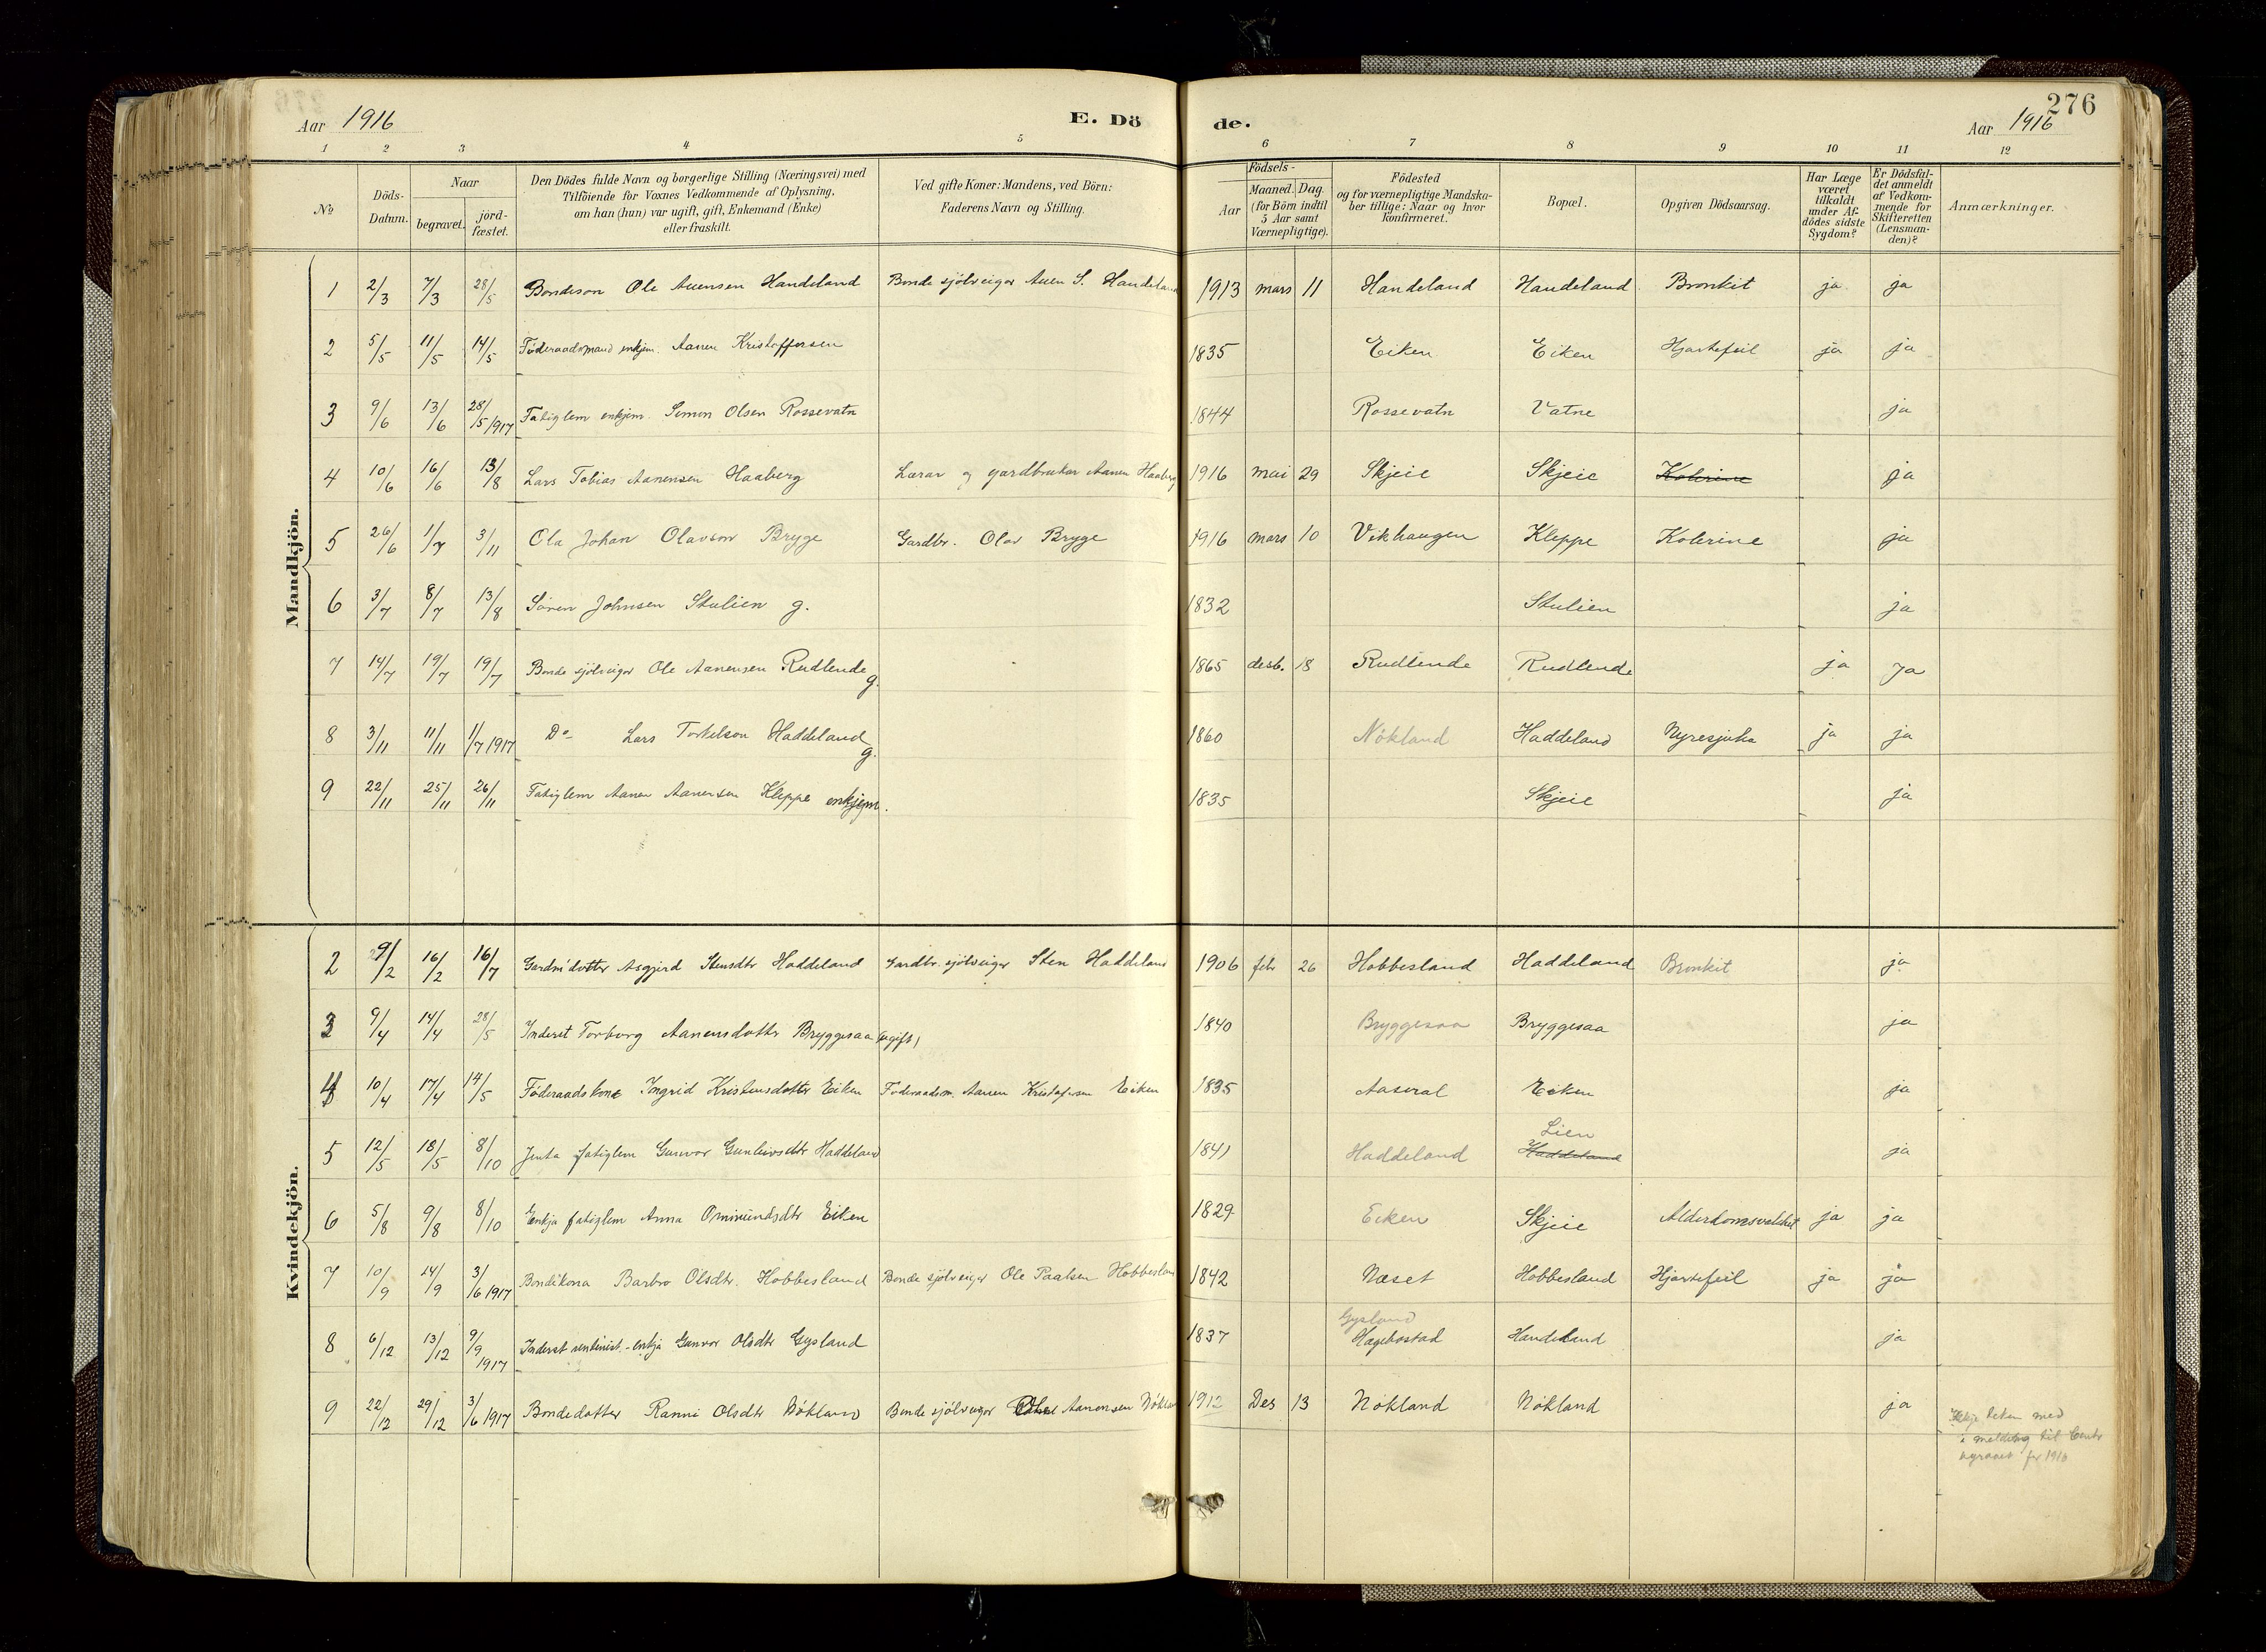 276
Aar 1916 E. Dö de. Aar 1916
1 2 3 4 5 6 7 8 9 10 11 12
№
Döds-Datum.
Naar
begravet. jord-fæstet.
Den Dödes fulde Navn og borgerlige Stilling (Næringsvei) med Tilföiende for Voxnes Vedkommende af Oplysning, om han (hun) var ugift, gift, Enkemand (Enke) eller fraskilt.
Ved gifte Koner: Mandens, ved Börn: Faderens Navn og Stilling.
Födsels-
Aar Maaned. Dag.
(for Börn indtil 5 Aar samt Værnepligtige).
Födested og for værnepligtige Mandskaber tillige: Naar og hvor Konfirmeret.
Bopæl.
Opgiven Dödsaarsag.
Har Læge været tilkaldt under Afdödes sidste Sygdom?
Er Dödsfaldet anmeldt af Vedkommende for Skifteretten (Lensmanden)?
Anmærkninger.
Mandkjön.
1 2/3 7/3 28/5 Bondeson Ole Auensen Handeland Bonde sjölveiger Auen S. Handeland 1913 mars 11 Handeland Handeland Bronkit ja ja
2 5/5 11/5 14/5 Föderaadsmand enkjem. Aanen Kristoffersen 1835 Eiken Eiken Hjartefeil ja ja
3 9/6 13/6 28/5 1917 Fatiglem enkjem. Simon Olsen Rossevatn 1844 Rossevatn Vatne ja
4 10/6 16/6 13/8 Lars Tobias Aanensen Haaberg Lærar og gardbrukar Aanen Haaberg 1916 mai 29 Skjeie Skjeie Kolerine ja
5 26/6 1/7 3/11 Ola Johan Olavson Bryge Gardbr. Olav Bryge 1916 mars 10 Vikhaugen Kleppe Kolerine ja
6 3/7 8/7 13/8 Sören Johnsen Stulien g. 1832 Stulien ja
7 14/7 19/7 19/7 Bonde sjölveiger Ole Aanensen Rudlende g. 1865 desb. 18 Rudlende Rudlende ja ja
8 3/11 11/11 1/7 1917 Do Lars Torkelson Haddeland g. 1860 Nökland Haddeland Nyresjuka ja ja
9 22/11 25/11 26/11 Fatiglem Aanen Aanensen Kleppe enkjem. 1835 Skjeie ja
Kvindekjön.
2 9/2 16/2 16/7 Gardm'dotter Asgjerd Stensdtr Haddeland Gardbr. sjölveiger Sten Haddeland 1906 febr 26 Hobbesland Haddeland Bronkit ja
3 9/4 14/4 28/5 Inderst Torborg Aanensdotter Bryggesaa (ugift) 1840 Bryggesaa Bryggesaa ja
4 10/4 17/4 14/5 Föderaadskone Ingrid Kristensdotter Eiken Föderaadsm. Aanen Kristofersen Eiken 1835 Aaseral Eiken ja
5 12/5 18/5 8/10 Jenta fatiglem Gunvor Gunleivsdtr Haddeland 1841 Haddeland Haddeland Lien ja
6 5/8 9/8 8/10 Enkja fatiglem Anna Omundsdtr Eiken 1829 Eiken Skjeie Alderdomsveikhet ja ja
7 10/9 14/9 3/6 1917 Bondekona Barbro Olsdtr. Hobbesland Bonde sjölveiger Ole Paalsen Hobbesland 1842 Næset Hobbesland Hjartefeil ja ja
8 6/12 13/12 9/9 1917 Inderst enkja Gunvor Olsdtr Gysland 1837 Gysland Hægebostad Handeland ja
9 22/12 29/12 3/6 1917 Bondedotter Ranni Olsdtr Nökland Bonde sjölveiger Aanensen Nökland 1912 Des 13 Nökland Nökland ja
Ikkje teken med
i melding til
for 1916